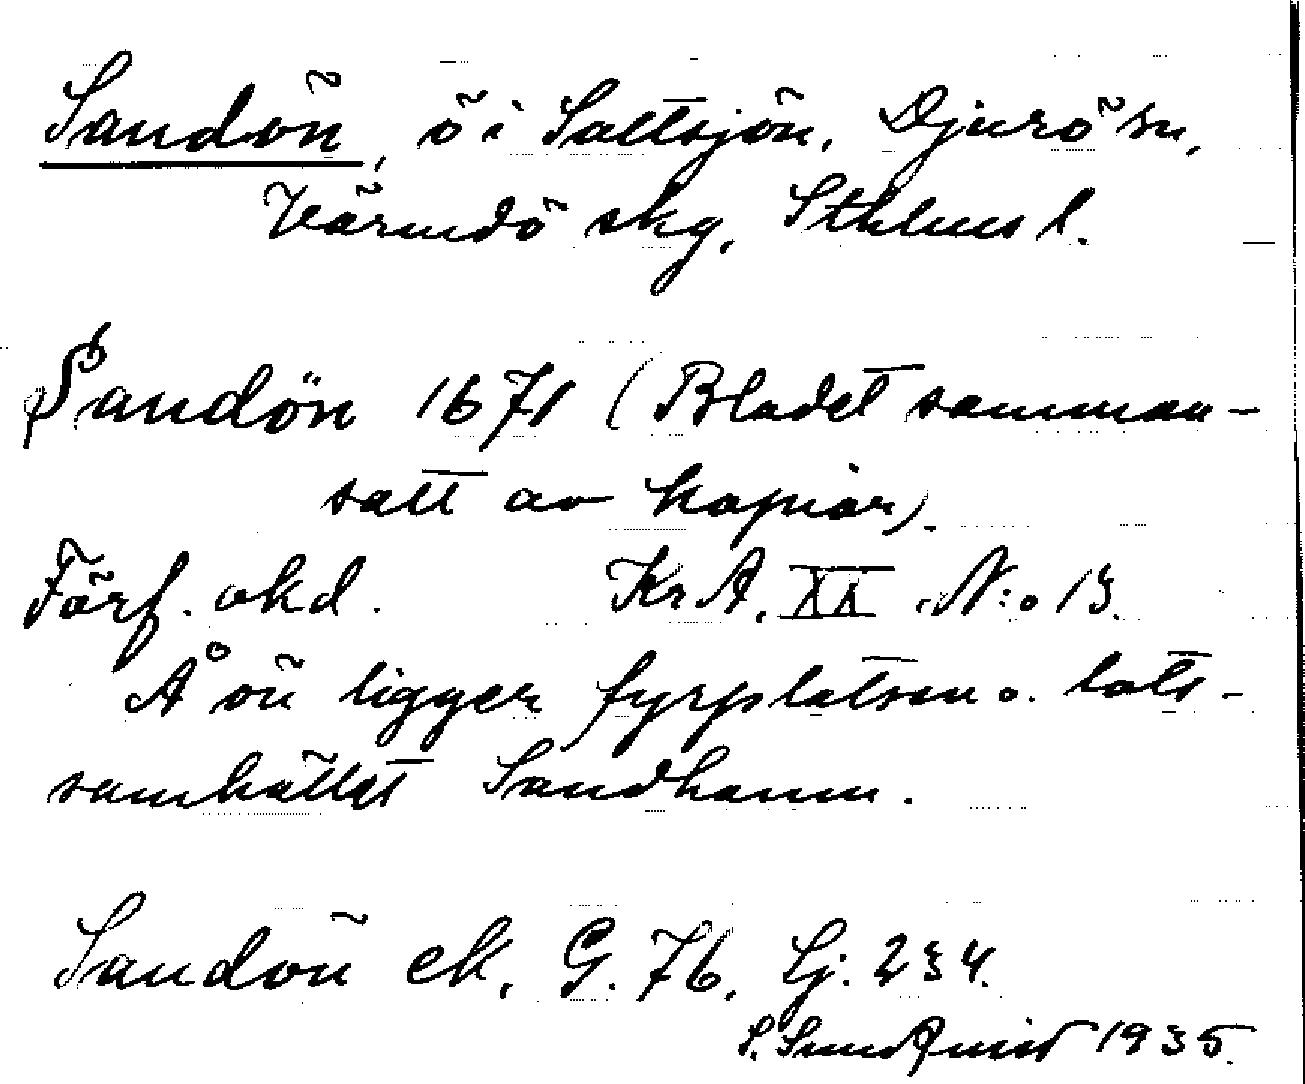 Sandön, ö i Saltsjön, Djurö sn,
Värmdö skg, Sthlms l.
Sandön 1671 (Bladet samman-
satt av kopior).
Förf. okd. KrA. XX N:o 13.
Å ön ligger fyrplatsen o. lots-
samhället Sandhamn.
Sandön ek. G. 76, Lj. 234.
S. Sundquist 1935.